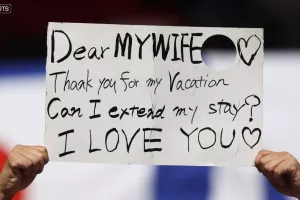 RTS
Dear MY WIFE ♡
Thank you for my Vacation
Can I extend my stay?
I LOVE YOU♡